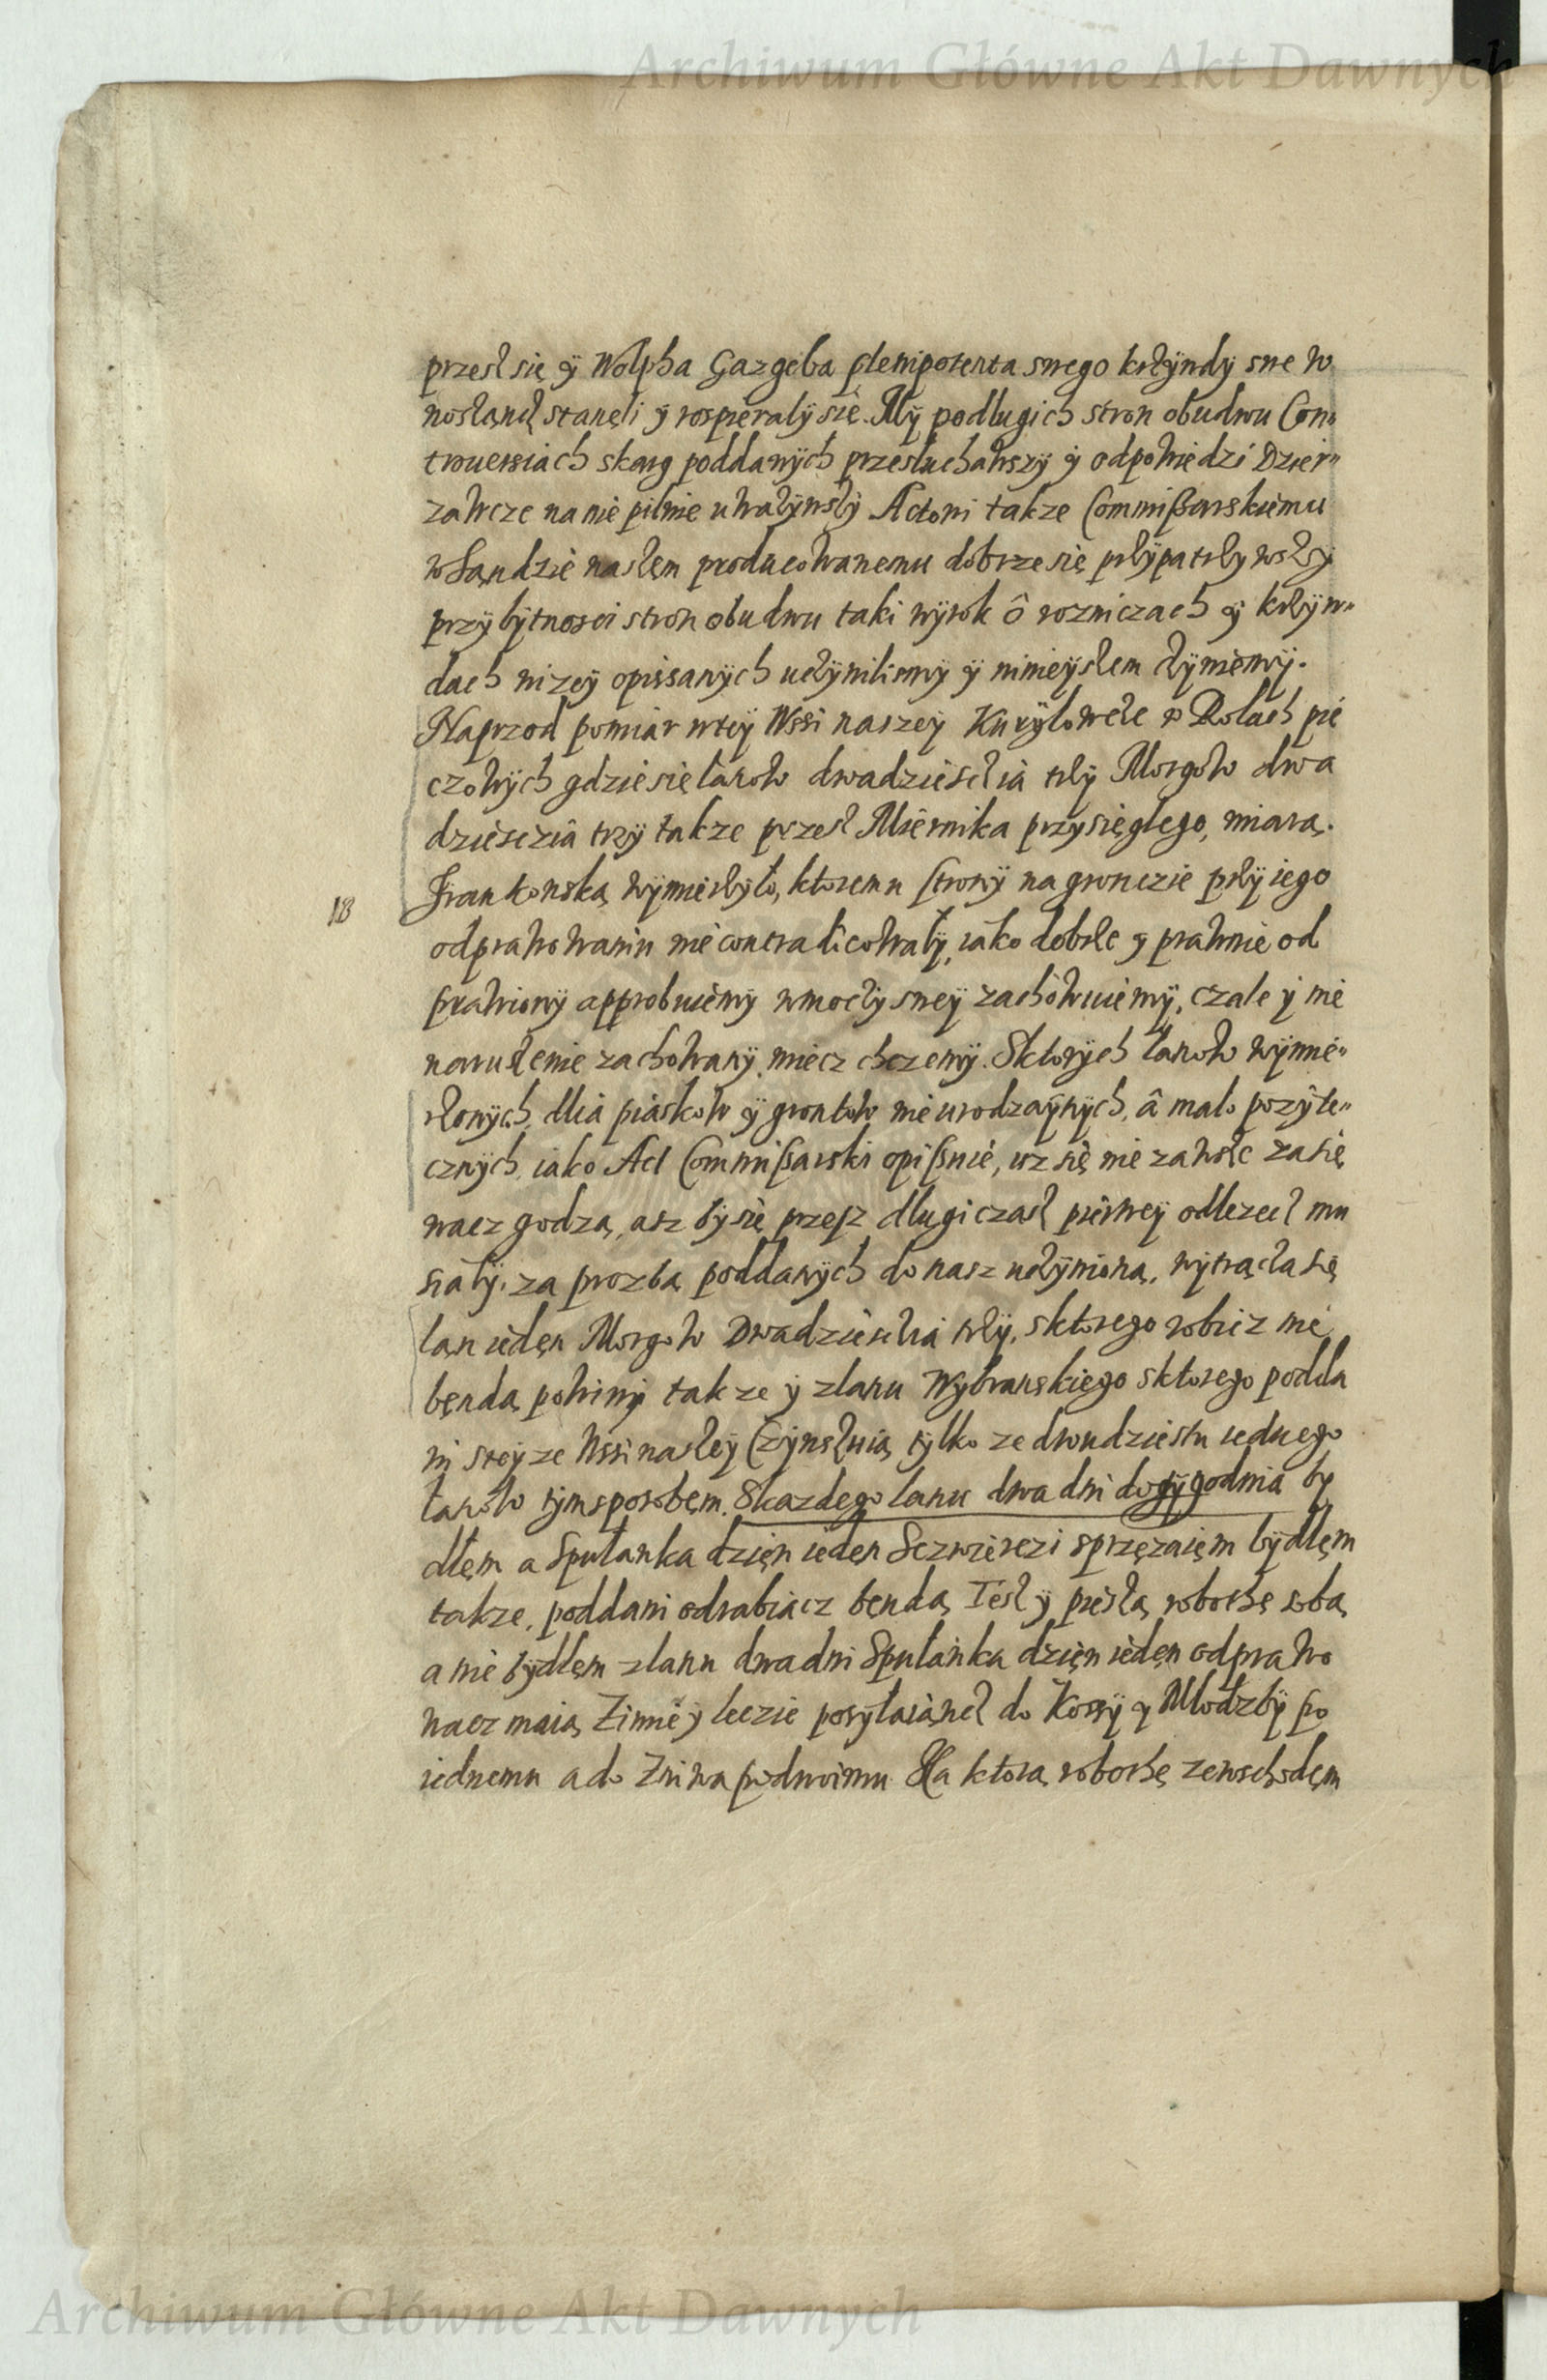 Archiwum Główne Akt Dawnych
przesz się y Wolpha Gazgeba plenipotenta swego krzywdy swe w
noszącz stanęli y rospieraly się. My podlugich stron obudwu Con„
trouersiach skarg poddanych przesluchawszy y odpowiedzi Dzier„
zawcze na nie pilnie uwazywszy Actowi takze Commißarskiemu
w Sandzie naszem producowanemu dobrze się przypatrzywszy
przybytnosci stron obudwu taki wyrok ô rozniczach y krzyw„
dach nizey opissanych uczynilismy y ninieyszem czyniemy.
Naprzod pomiar wtey Wssi naszey Kurylowcze w Rolach pie
czowych gdzie się lanow dwadziesczia trzy Morgow dwa
dziesczia trzy takze przesz Miernika przysięglego, miarą.
Frankonską wymierzylo, ktoremu strony na gronczie przyiego
18
odprawowaniu nie contradicowaly, iako dobrze y prawnie od
prawiony approbuiemy wmoczy swey zachowuiemy, czale y nie
naruszenie zachowany miecz chczemy. Sktorych lanow wymie„
rzonych, dlia piaskow y grontow nieurodzaynych, â malo pozyte„
cznych, iako Act Commißarski opißuie, isz się nie zawsze zasie
wacz godzą, asz by się przesz dlugi czasz pierwey odlezecz mu
sialy, za prozbą poddanych do nasz uczynioną, wytrącza się
lan ieden Morgow Dwadziesczia trzy, sktorego robicz nie
bendą powiny takze y zlanu Wybranskiego sktorego podda
ni steyze Wssi naszey Czynszuią tylko ze dwudziestu iednego
lanow tym sposobem. Skazdego lanu dwa dni do tygodnia by
dlem a Spulanka dzien ieden Sczwierczi sprzęzaiem bydlem
takze, poddani odrabiacz bendą Iesz y pieszą roboth̨ę sobą
a nie bydlem zlanu dwa dni Spulanka dzien ieden odprawo
wacz maią Zimie y leczie posylaiącz do Kossy y Mlodzby po
iednemu a do Zniwa podwoimu Na ktorą robothę zewschodem
Archiwum Główne Akt Dawnych